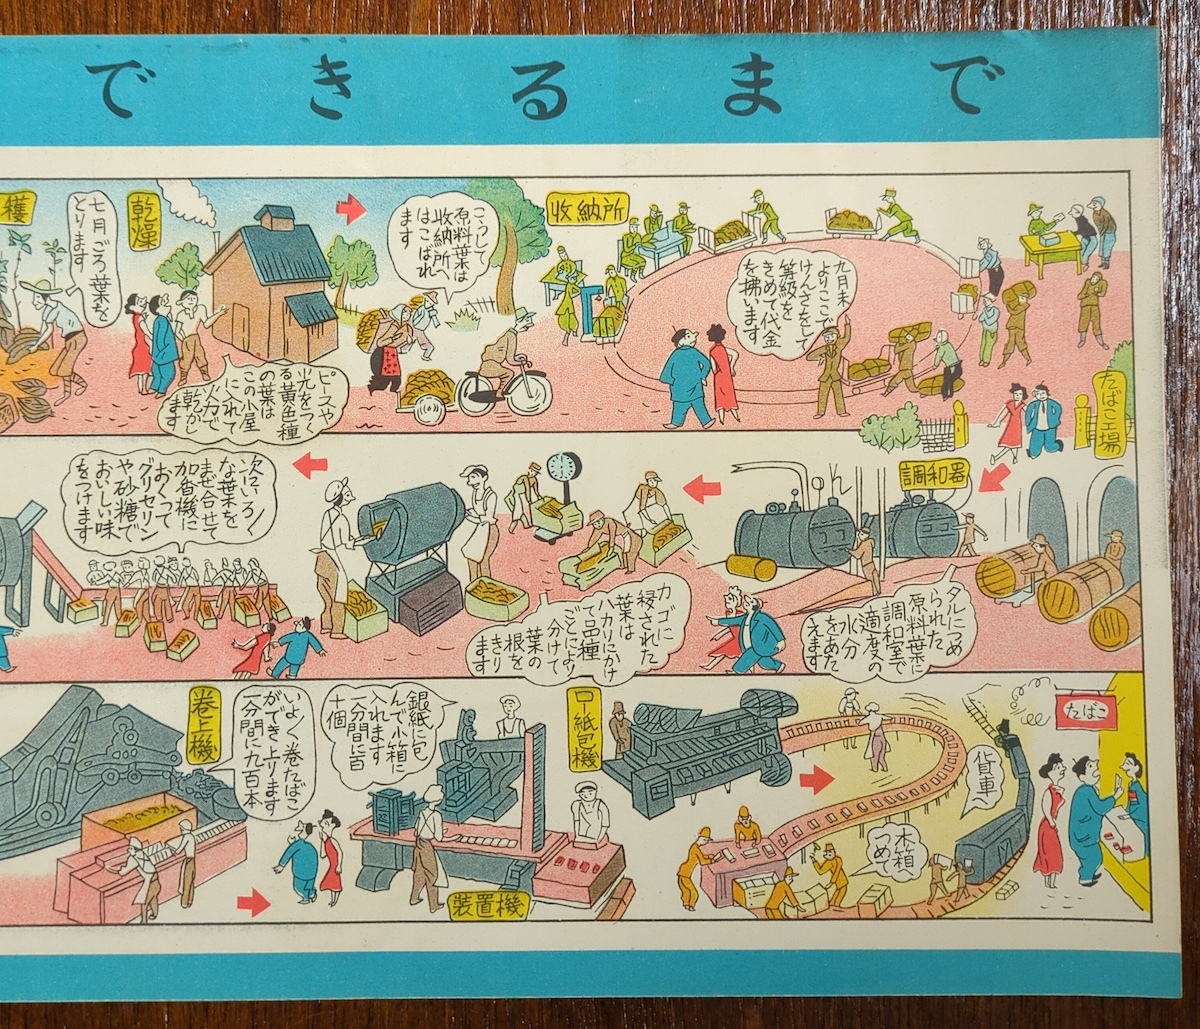 できるまで
獲
七月ごろ葉を
とります
乾燥
ピースや
光をつく
る黄色種
の葉は
この小屋
に入れて
火力で
乾かし
ます
こうして
原料葉は
収納所へ
はこばれ
ます
収納所
九月末
よりここで
けんさをして
等級を
きめて代金
を拂います
たばこ工場
調和器
タルにつめ
られた
原料葉に
調和室で
適度の
水分
をあた
えます
カゴに
移された
葉は
ハカリにかけ
て品種
ごとにより
分けて
葉の
根を
きり
ます
次にいろ〱
な葉を
まぜ合せて
加香機に
おくって
グリセリン
や砂糖で
おいしい味
をつけます
巻上機
いよ〱巻たばこ
ができ上ります
一分間に九百本
銀紙に包
んで小箱に
入れます
一分間に百
十個
装置機
口紙包機
木箱
つめ
貨車
たばこ